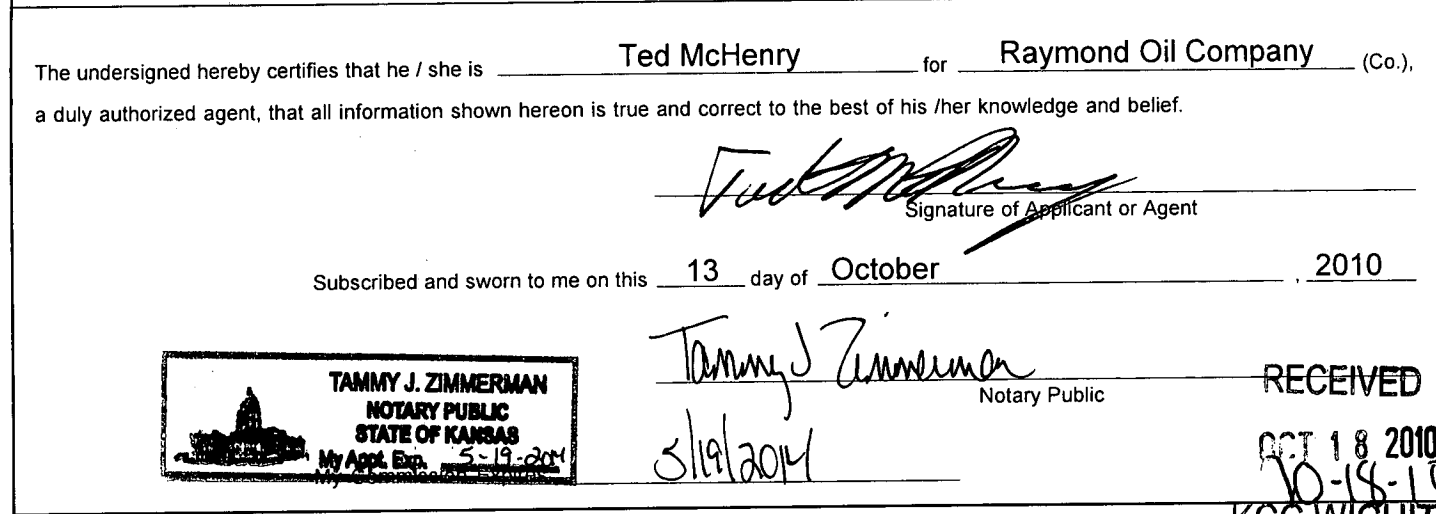 The undersigned hereby certifies that he / she is Ted McHenry for Raymond Oil Company (Co.),
a duly authorized agent, that all information shown hereon is true and correct to the best of his /her knowledge and belief.
Ted McHenry
Signature of Applicant or Agent
Subscribed and sworn to me on this 13 day of October , 2010
Tammy J Zimmerman
Notary Public
RECEIVED
TAMMY J. ZIMMERMAN
NOTARY PUBLIC
STATE OF KANSAS
My Appt. Exp. 5-19-2014
My Commission Expires
5/19/2014
OCT 18 2010
10-18-1
KCC WICHIT